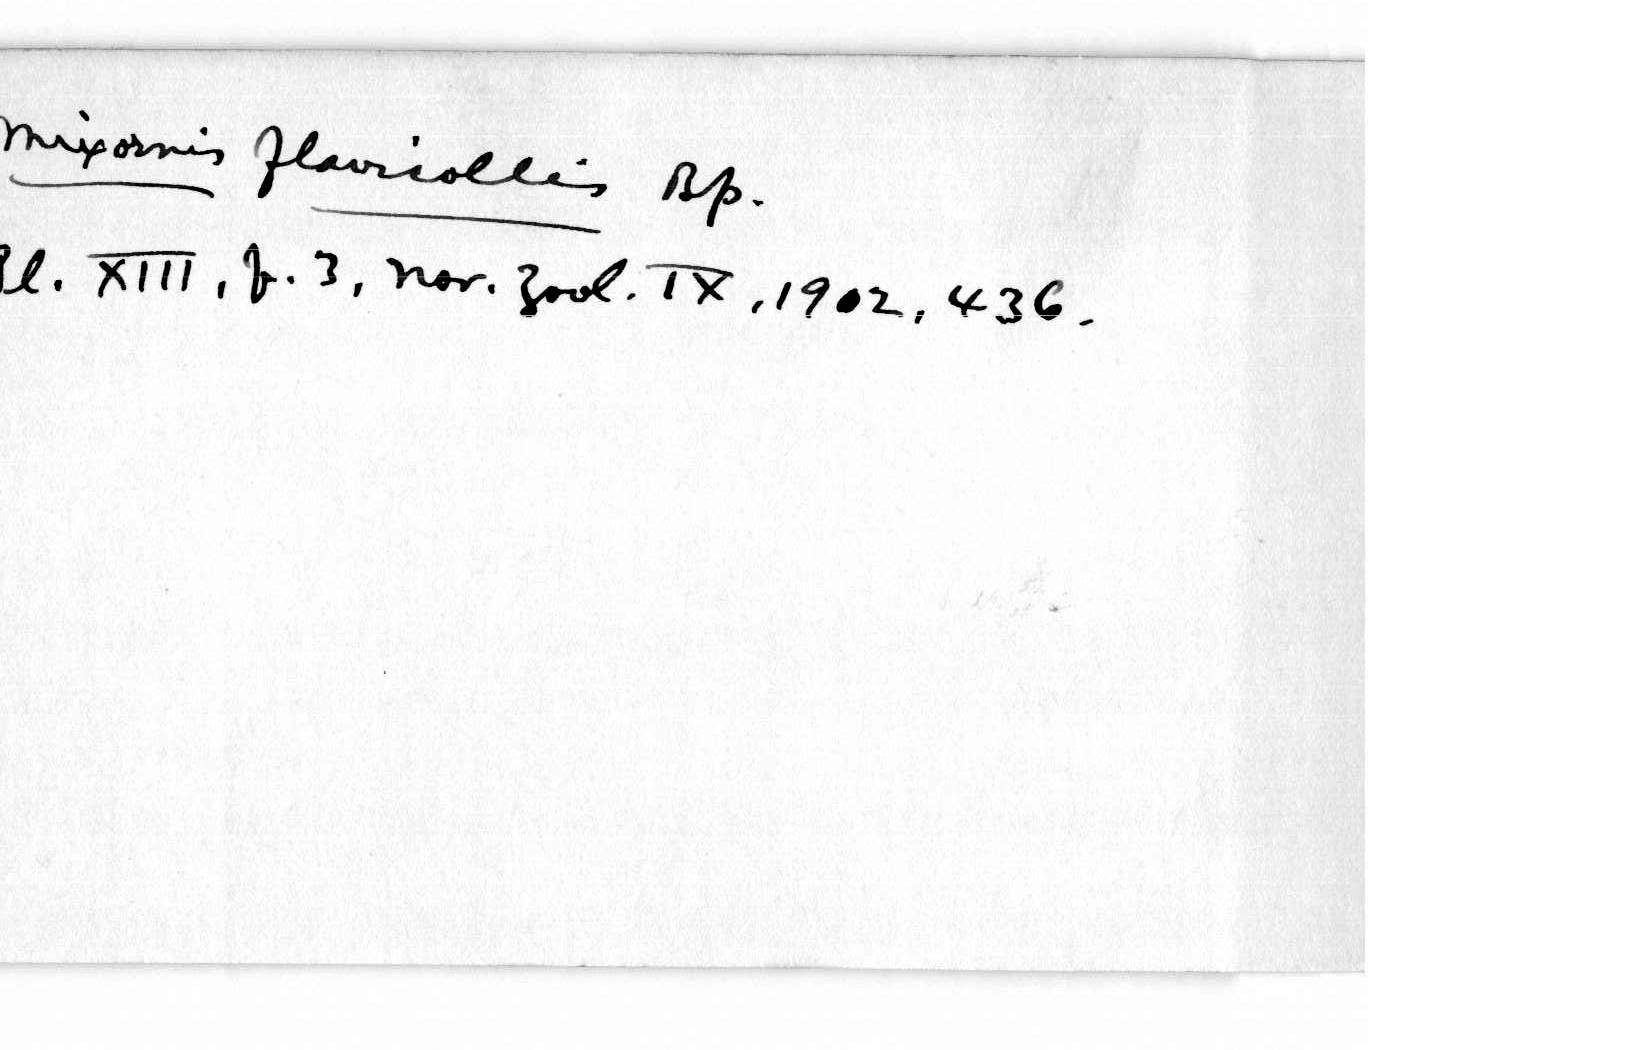 Mixornis flavicollis Bp.
Pl. XIII, f. 3, Nov. Zool. IX, 1902, 436.